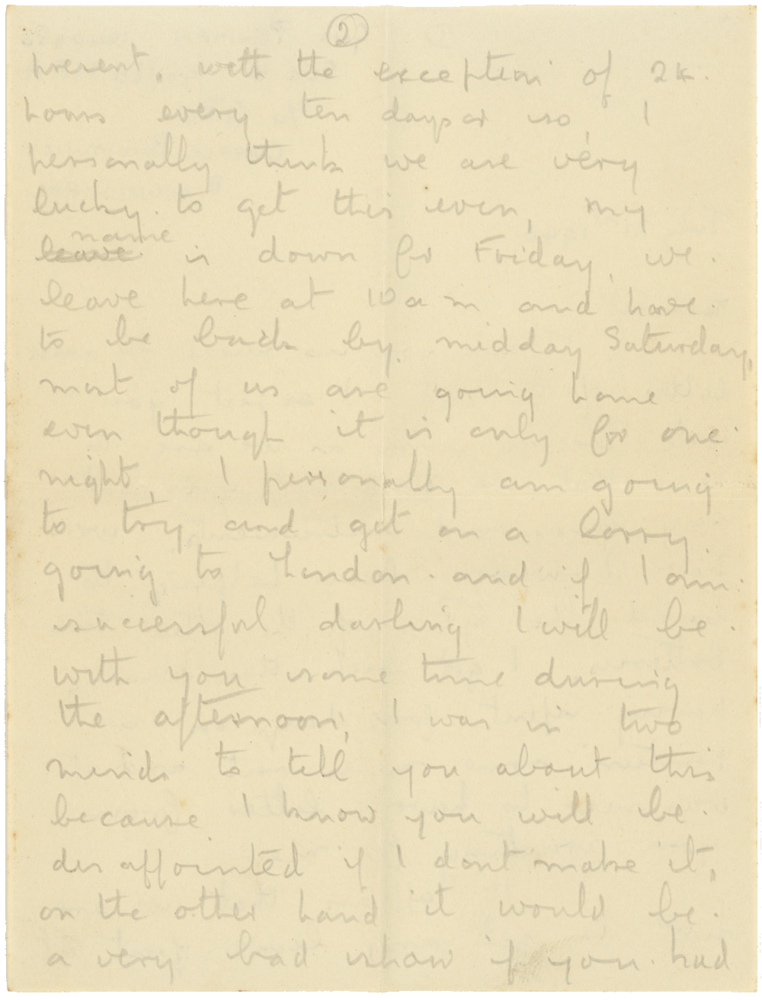 2
present, with the exception of 24
hours every ten days or so, I
personally think we are very
lucky to get this even, my
name
leave is down for Friday, we
leave here at 10 a m and have
to be back by midday Saturday,
most of us are going home
even though it is only for one
night, I personally am going
to try and get on a lorry
going to London. and if I am
successful darling I will be
with you some time during
the afternoon, I was in two
minds to tell you about this
because I know you will be
disappointed if I dont make it,
on the other hand it would be
a very bad show if you had